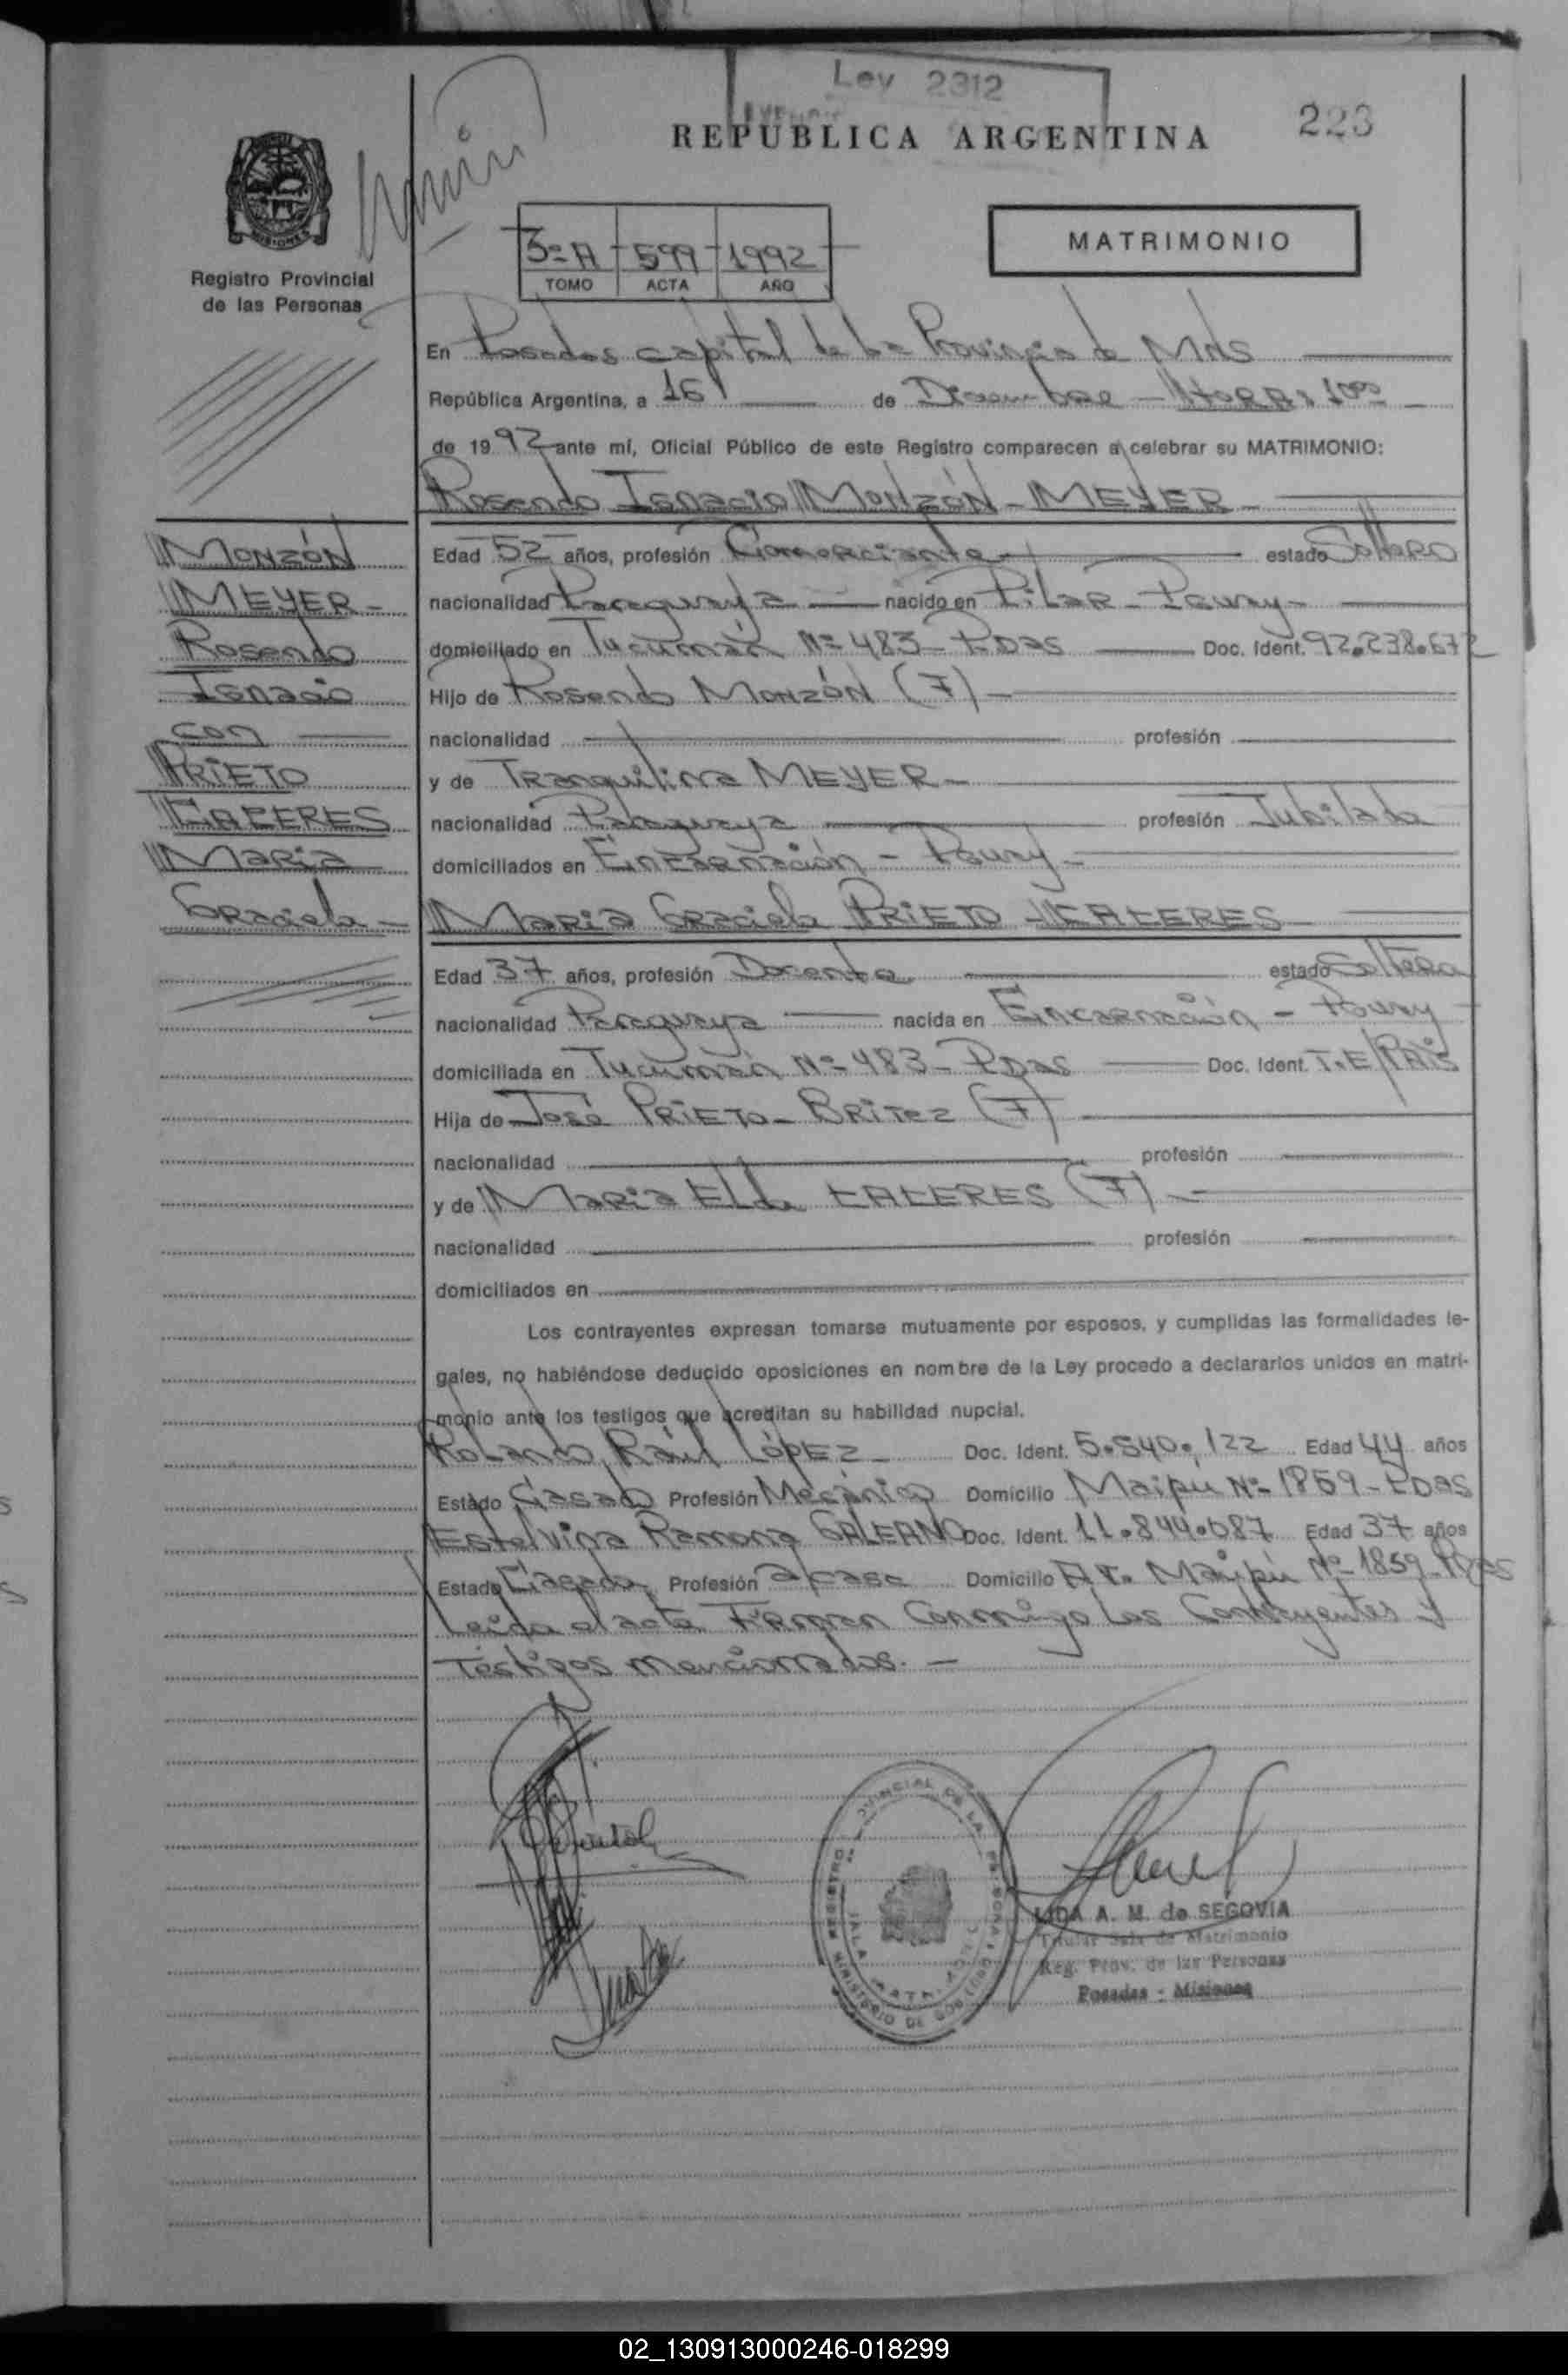 Ley 2312
REPUBLICA ARGENTINA
223
MISIONES
Registro Provincial
de las Personas
3º A 599 1992
TOMO ACTA AÑO
MATRIMONIO
En Posadas capital de la Provincia de Mnes
República Argentina, a 16 de Diciembre - HORA: 10⁰⁰
de 1992 ante mí, Oficial Público de este Registro comparecen a celebrar su MATRIMONIO:
Rosendo Ignacio MONZÓN - MEYER -
MONZÓN
MEYER -
Rosendo
Ignacio
con
PRIETO
CACERES
Maria
Graciela -
Edad 52 años, profesión Comerciante estado Soltero
nacionalidad Paraguaya nacido en Pilar - Pguay -
domiciliado en Tucumán Nº 483 - Pdas Doc. Ident. 92.238.672
Hijo de Rosendo MONZÓN (F) -
nacionalidad profesión
y de Tranquilina MEYER -
nacionalidad Paraguaya profesión Jubilada
domiciliados en Encarnación - Pguay -
Maria Graciela PRIETO - CACERES
Edad 37 años, profesión Docente estado Soltera
nacionalidad Paraguaya nacida en Encarnación - Pguay -
domiciliada en Tucumán Nº 483 - Pdas Doc. Ident. T.E/PAIS
Hija de José PRIETO - BRITEZ (F)
nacionalidad profesión
y de Maria Elda CACERES (F) -
nacionalidad profesión
domiciliados en
Los contrayentes expresan tomarse mutuamente por esposos, y cumplidas las formalidades le-
gales, no habiéndose deducido oposiciones en nombre de la Ley procedo a declararlos unidos en matri-
monio ante los testigos que acreditan su habilidad nupcial.
Rolando Raúl LÓPEZ - Doc. Ident. 5.540.122 Edad 44 años
Estado Casado Profesión Mecánico Domicilio Maipu Nº 1859 - Pdas
Estelvina Ramona GALEANO Doc. Ident. 11.844.087 Edad 37 años
Estado Casada Profesión a/casa Domicilio Av. Maipú Nº 1859 - Pdas
Leida el acta Firman Conmigo Los Contrayentes y
Testigos mencionados. -
LIDA A. M. de SEGOVIA
Titular Sala de Matrimonio
Reg. Prov. de las Personas
Posadas - Misiones
02_130913000246-018299